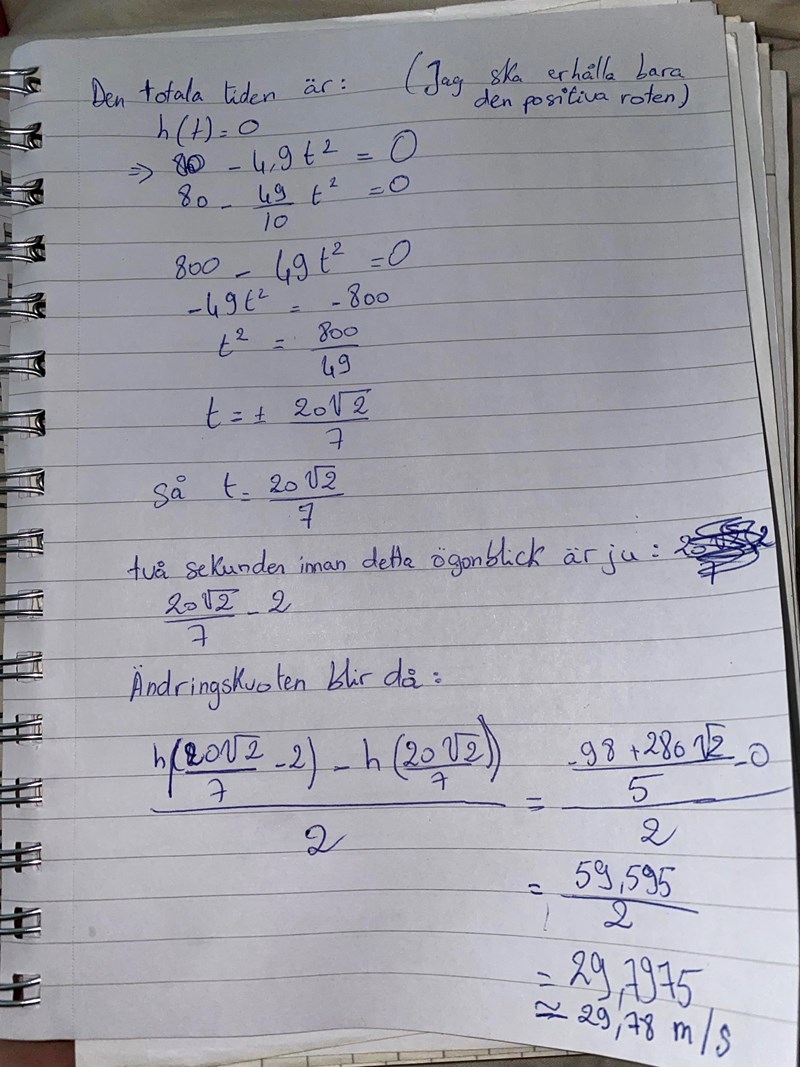 Den totala tiden är: (Jag ska erhålla bara
den positiva roten)
h(t)=0
⇒ 80 - 4,9t² = 0
80 - 49/10 t² = 0
800 - 49t² = 0
-49t² = -800
t² = 800/49
t = ± 20√2/7
Så t = 20√2/7
två sekunden iman detta ögonblick är ju:
20√2/7 - 2
Ändringskvoten blir då:
(h(20√2/7 - 2) - h(20√2/7))/2 = ((-98+280√2)/5 - 0)/2
= 59,595/2
= 29,7975
≈ 29,78 m/s